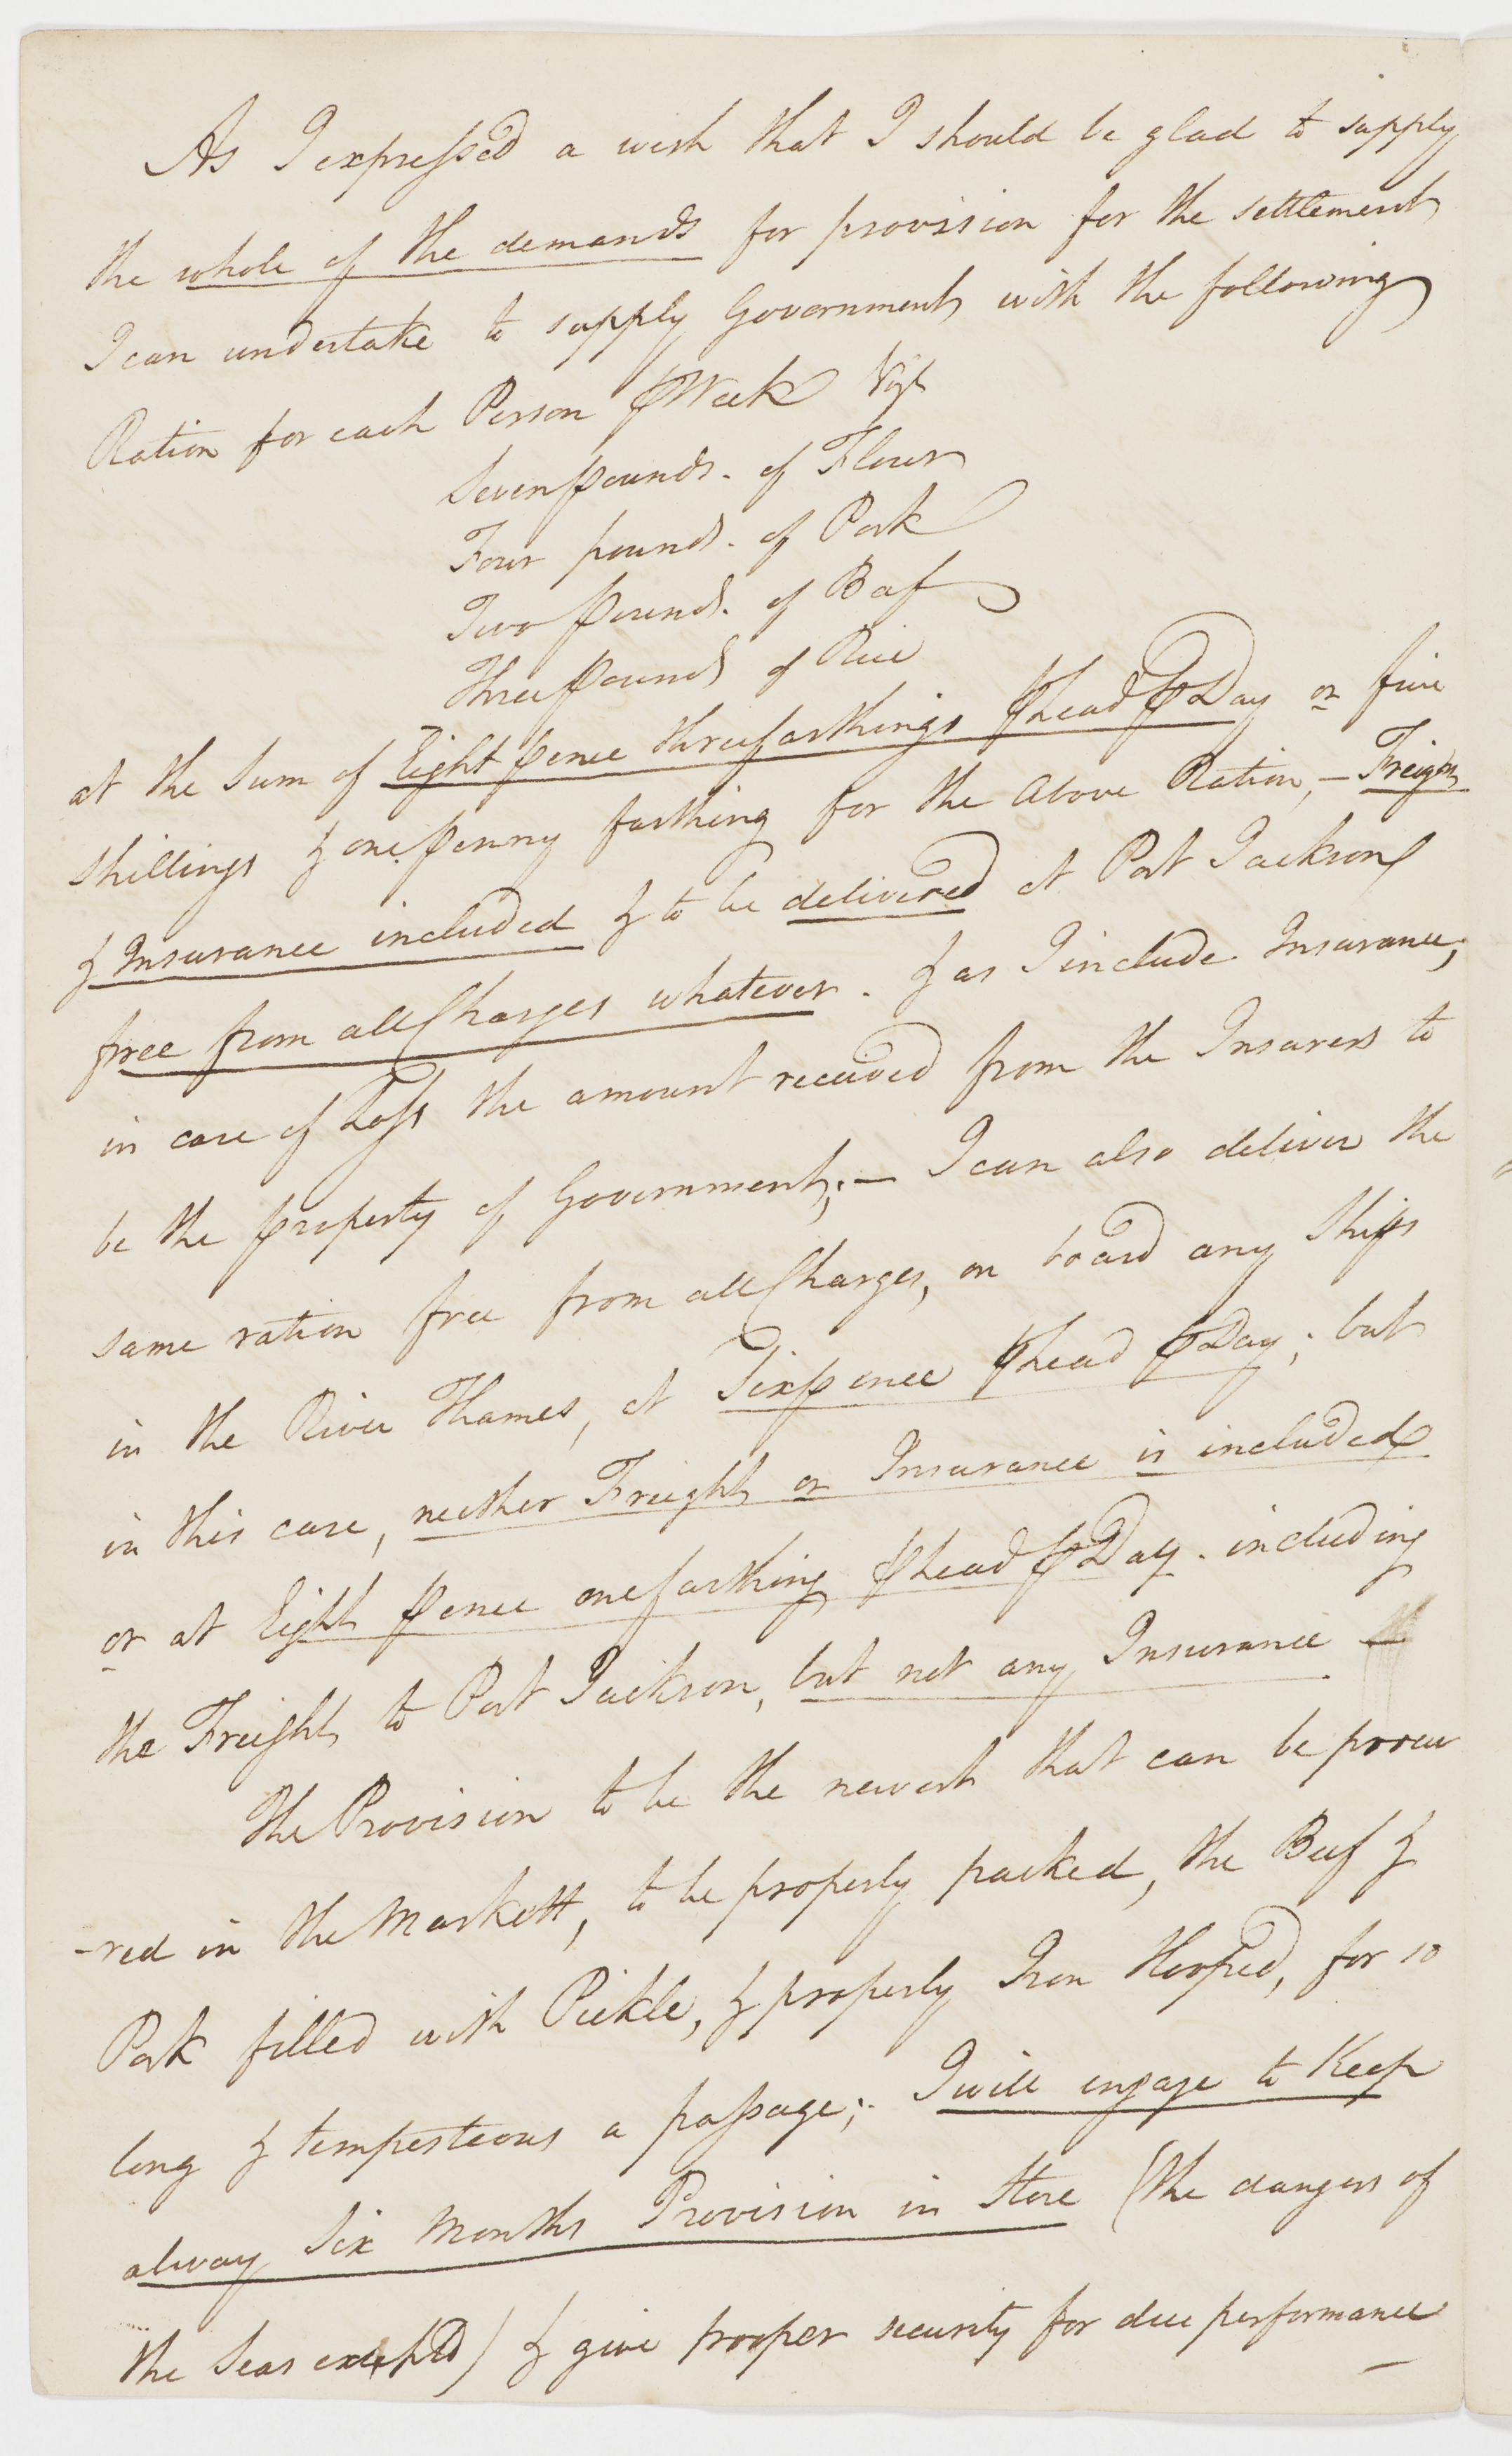 As I expressed a wish that I should be glad to supply
the whole of the demands for provision for the settlement
I can undertake to supply Government with the following
Ration for each Person ⅌ Week Vizt
Seven pounds. of Flour
Four pounds. of Pork
Two pounds. of Beef
Three pounds of Rice
at the Sum of Eight pence three farthings ⅌ head ⅌ Day or five
shillings & one penny farthing for the above Ration, — Freight
& Insurance included & to be delivered at Port Jackson
free from all Charges whatever. & as I include Insurance,
in case of Loss the amount received from the Insurers to
be the property of Government; — I can also deliver the
same ration free from all Charges, on board any Ships
in the River Thames, at Sixpence ⅌ head ⅌ Day; but
in this case, neither Freight or Insurance is included
or at Eight pence one farthing ⅌ head ⅌ Day. including
the Freight to Port Jackson, but not any Insurance —
The Provision to be the newest that can be procu
-red in the Markett, to be properly packed, the Beef &
Pork filled with Pickle, & properly Iron Hooped, for so
long & tempesteous a passage; I will engage to Keep
alway Six Months Provision in Store (the dangers of
the Seas excepted) & give proper security for due performance
—